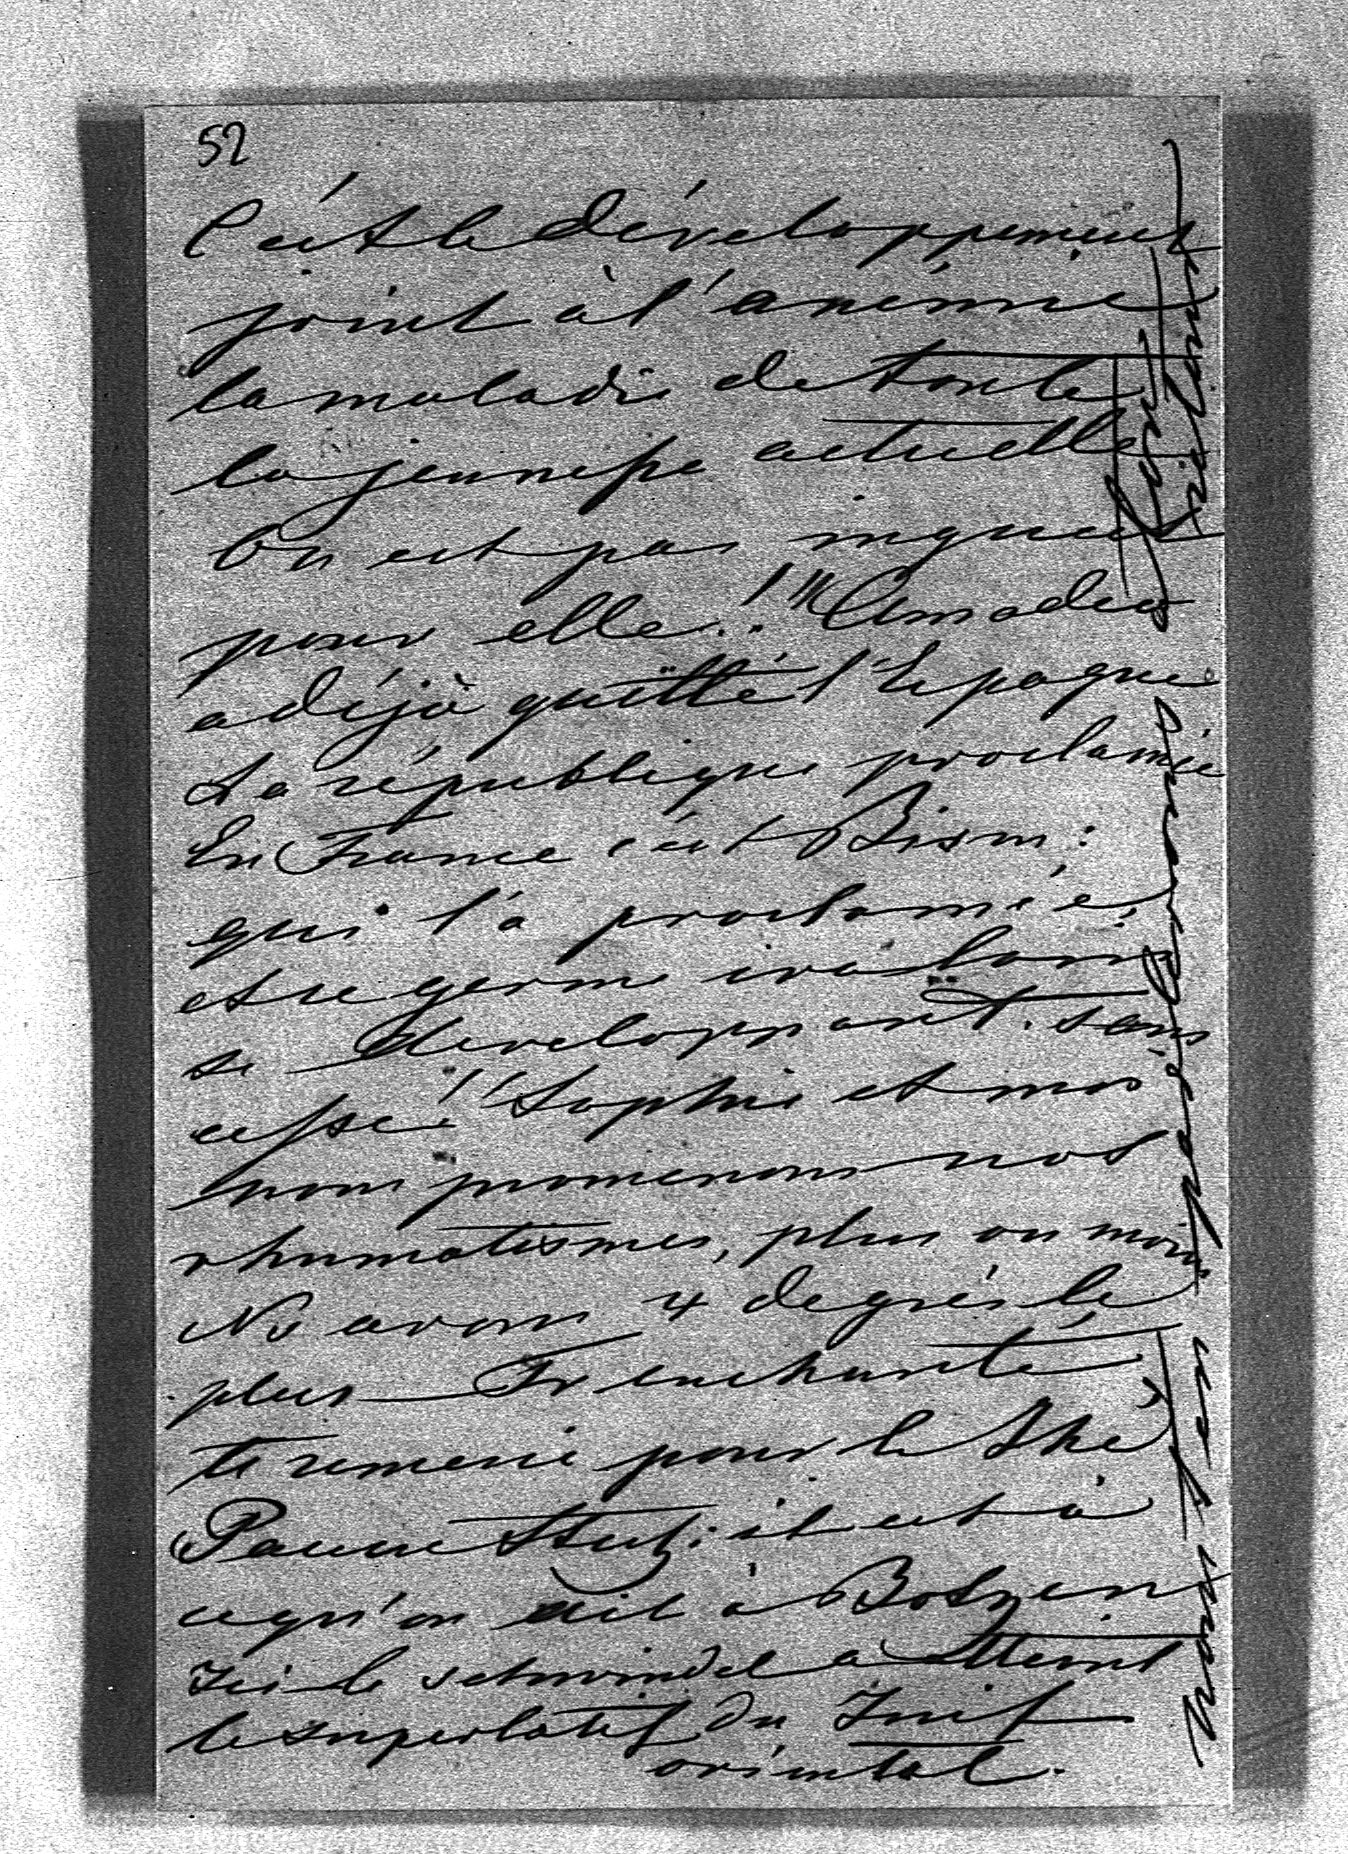 52
C'est le développement
joint à l'anémie
la maladie de toute
la jeunesse actuelle
On est pas inquiet
pour elle!! Amadeo
a déjà quitté l'Espagne
La république proclamée
En France c'est Bism:
qui l'a proclamée
et ce germe ira loin
se developpant sans
cesse! Sophie et moi
nous promenons nos
rhumatismes, plus ou moins
Ns avons 4 degrés le
plus Fr enchanté
te remercie pour le Thé
Pauvre Stut: il est à
ce qu'on dit à Botzen
Ici le schwindel a atteint
le superlatif du Juif
oriental.
nous ten